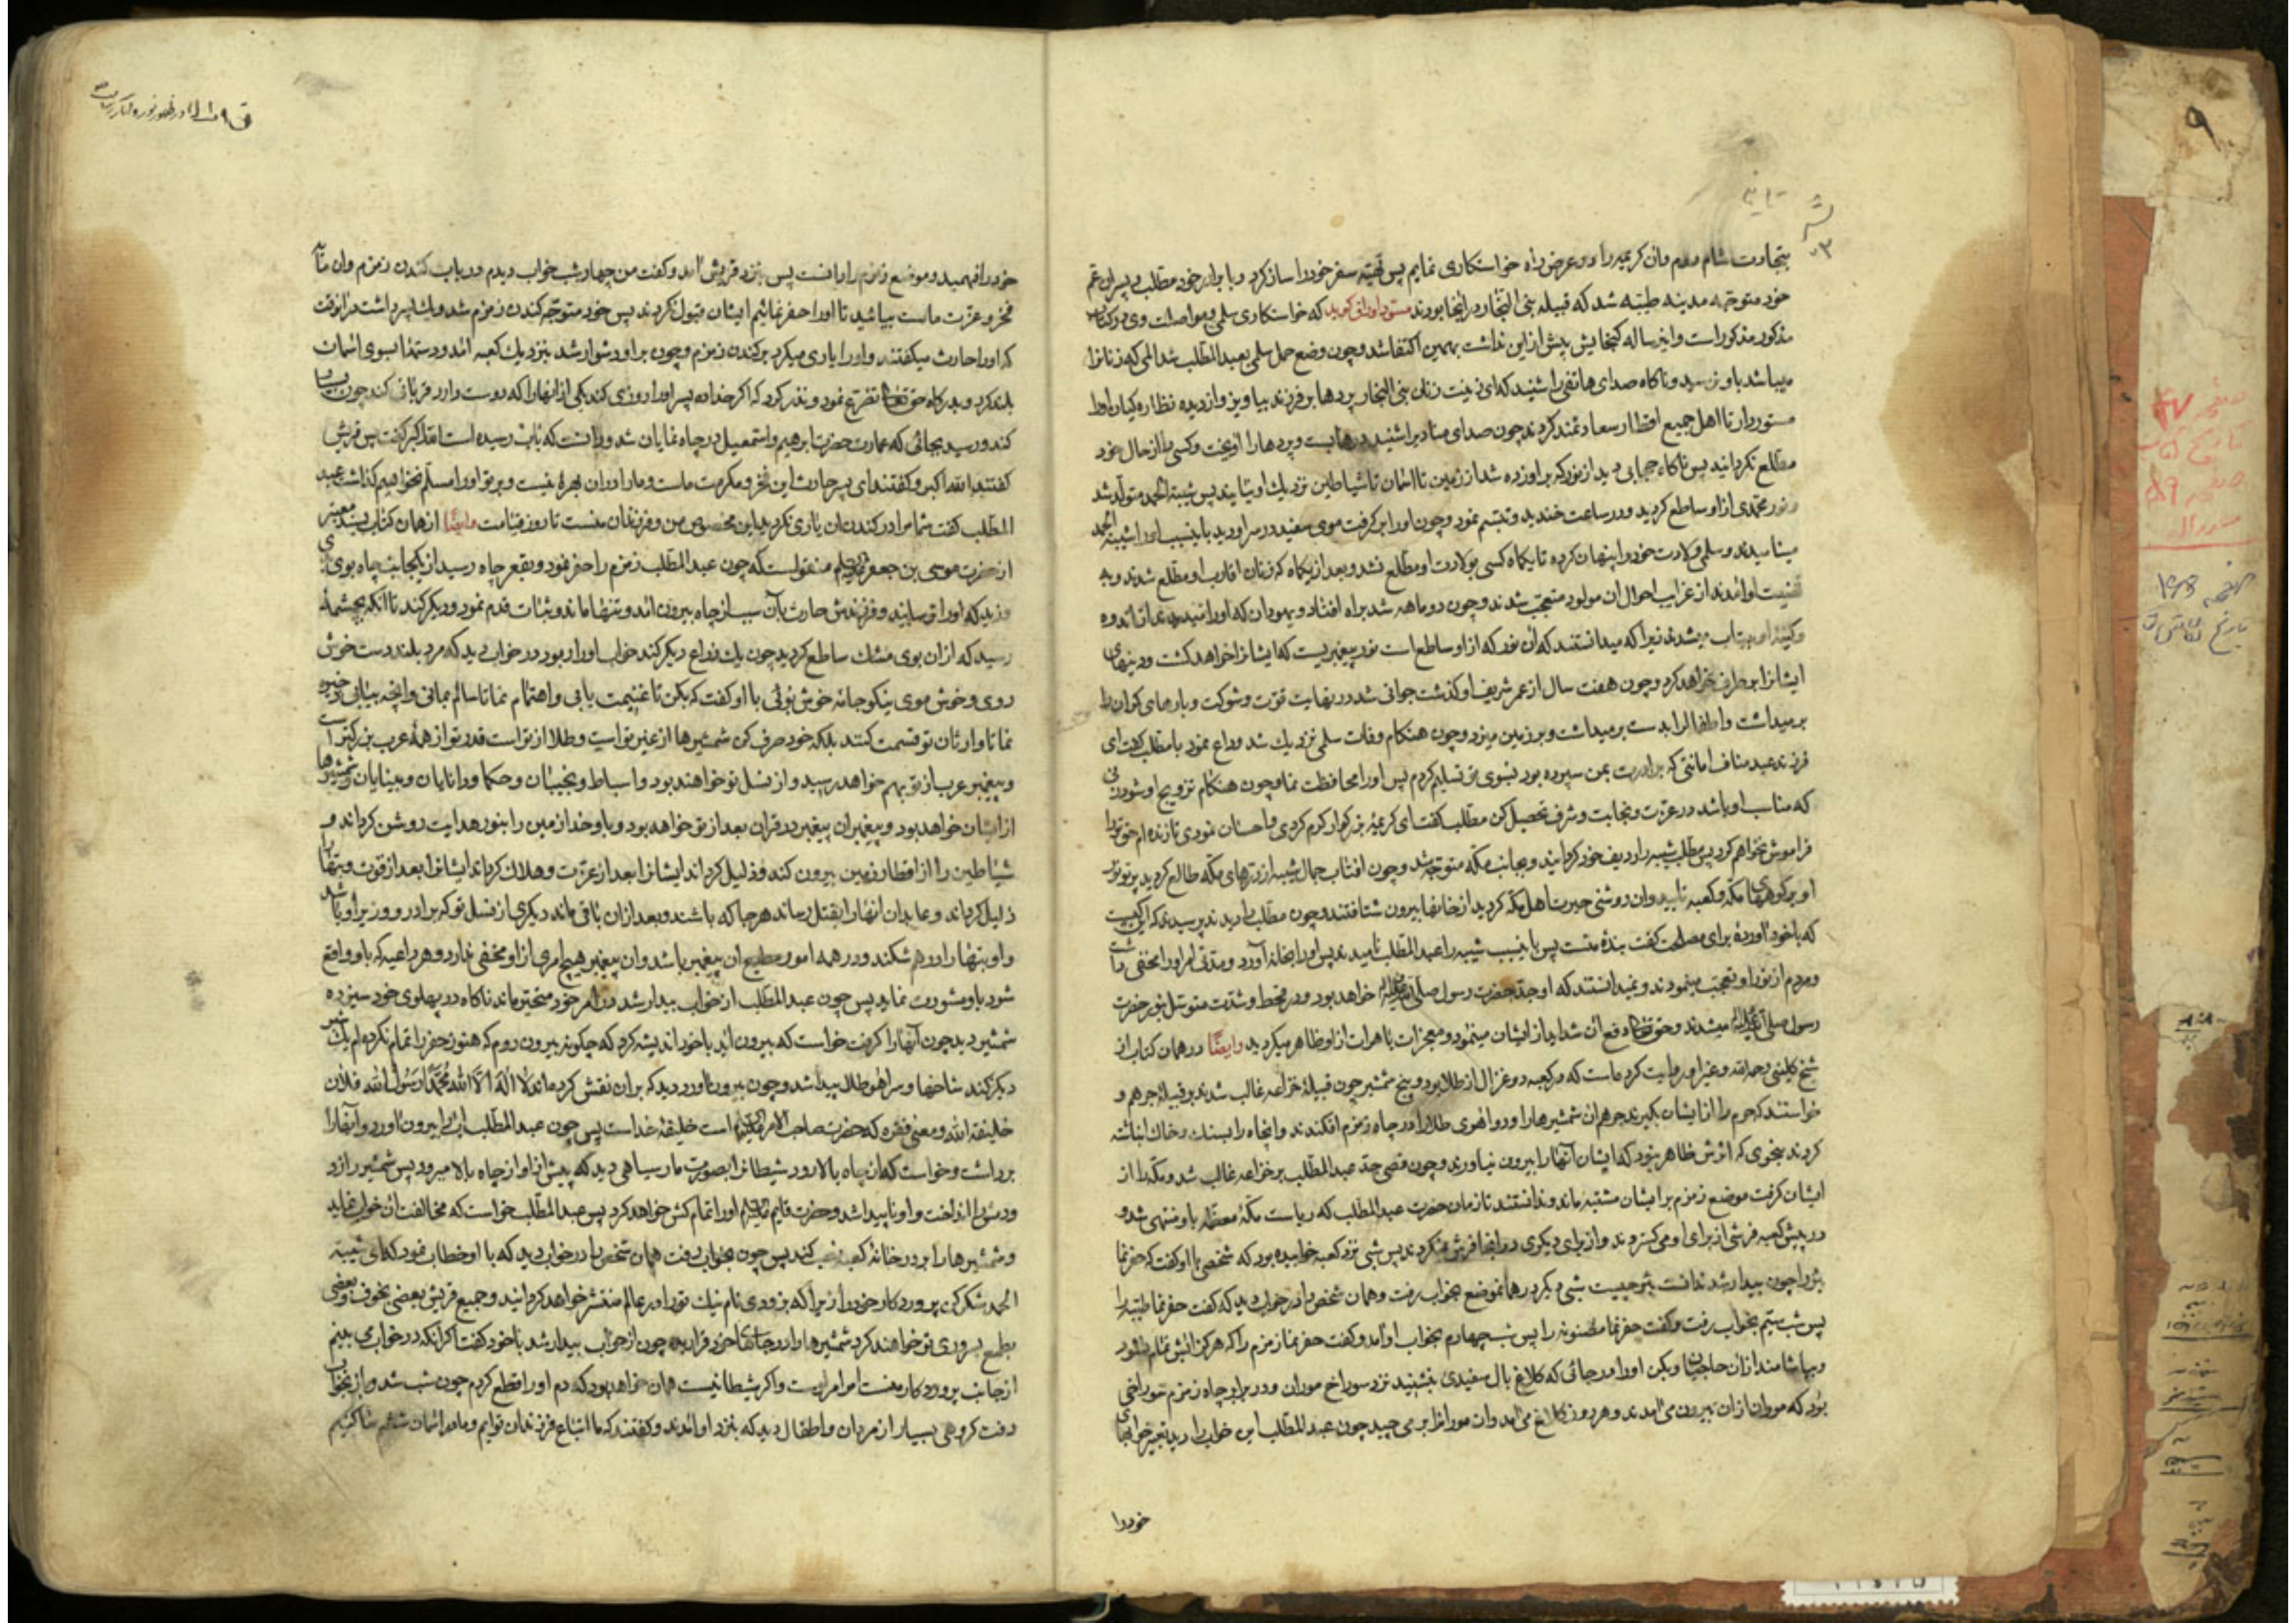 بتجارت شام روم وان کریمه را در عرض راه خواستکاری نمایم پس تهیه سفر خود را ساز کرد و با برادر خود مطلب و پسران عم
خود متوجه مدینه طیبه شد که قبیله بنی النجار در انجا بودند مسود اوراق کوید که خواستکاری سلمی و مواصلت وی در کتاب
مذکور مذکور است و این رساله کنجایش بیش از این نداشت بهمین اکتفا شد و چون وضع حمل سلمی بعبد المطلب شد المی که زنانرا
میباشد باو نرسید و ناکاه صدای هاتفی را شنید که ای زینت زنان بنی النجار پردها بر فرزند بیاویز و از دیده نظاره کیان او را
مستور دار تا اهل جمیع اقطار سعادتمند کردند چون صدای منادی را شنید درها بست و پردها را اویخت و کسی را از حال خود
مطلع نکردانید پس ناکاه حجابی دید از نور که بر او زده شد از زمین تا اسمان تا شیاطین نزدیک او نیایند پس شیبة الحمد متولد شد
و نور محمدی از او ساطع کردید و در ساعت خندید و تبسم نمود و چون او را بر کرفت موی سفید در سر او دید باینسبب او را شیبة الحمد
مینامیدند و سلمی ولادت خود را پنهان کرده تا یکماه کسی بولادت او مطلع نشد و بعد از یکماه که زنان اقارب او مطلع شدند و به
تهنیت او امدند از غرایب احوال ان مولود متعجب شدند و چون دو ماهه شد براه افتاد و یهودان که او را میدیدند از اندوه
و کینه او بیتاب میشدند زیرا که میدانستند که ان نور که از او ساطع است نور پیغمبریست که ایشانرا خواهد کشت و دینهای
ایشانرا برطرف خواهد کرد و چون هفت سال از عمر شریف او کذشت جوانی شد در نهایت قوت و شوکت و بارهای کران را
بر میداشت و اطفال را بدست بر میداشت و بر زمین میزد و چون هنکام وفات سلمی نزدیک شد وداع نمود با مطلب کفت ای
فرزند عبد مناف امانتی که برادرت بمن سپرده بود بسوی تو تسلیم کردم پس او را محافظت نما و چون هنکام تزویج او شود زنی
که مناسب او باشد در عزت و نجابت و شرف تحصیل کن مطلب کفت ای کریمه بزرکوار کرم کردی و احسان نمودی تا زنده ام حق ترا
فراموش نخواهم کرد پس مطلب شیبه را ردیف خود کردانید و بجانب مکه متوجه شد و چون افتاب جمال شیبه از درهای مکه طالع کردید پرتو نور
او بر کوههای مکه و کعبه تابید و ان روشنی حیرت اهل مکه کردید از خانها بیرون شتافتند و چون مطلب را دیدند پرسیدند که این کیست
که با خود اورده برای مصلحت کفت بنده منست پس باینسبب شیبه را عبد المطلب نامیدند پس او را بخانه آورد و مدتی امر او را مخفی داشت
و مردم از نور او تعجب مینمودند و نمیدانستند که او جد حضرت رسول صلی الله علیه خواهد بود و در قحط و شدت متوسل بنور حضرت
رسول صلی الله علیه میشدند و حق تعالی دفع ان شداید از ایشان مینمود و معجزات باهرات از او ظاهر میکردید وایضا در همان کتاب از
شیخ کلینی رحمه الله و غیر او روایت کرده است که در کعبه دو غزال از طلا بود و پنج شمشیر چون قبیله خزاعه غالب شدند بر قبیله جرهم و
خواستند که حرم را از ایشان بکیرند جرهم ان شمشیرها را و دو اهوی طلا را در چاه زمزم افکندند و انچاه را بسنک و خاک انباشته
کردند بنحوی که اثرش ظاهر نبود که ایشان آنها را بیرون نیاورند و چون قصی جد عبد المطلب بر خزاعه غالب شد و مکه را از
ایشان کرفت موضع زمزم بر ایشان مشتبه ماند و ندانستند تا زمان حضرت عبد المطلب که ریاست مکه معظمه باو منتهی شد و
در پیش کعبه فرشی از برای او می کستردند و از برای دیکری در انجا فرش نمیکردند پس شبی نزد کعبه خوابیده بود که شخصی با او کفت که حفر نما
بره را چون بیدار شد ندانست بره چیست شبی دیکر در همانموضع بخواب رفت و همان شخص را در خواب دید که کفت حفر نما طیبه را
پس شب سیم بخواب رفت و کفت حفر نما مضنونه را پس شب چهارم بخواب او آمد و کفت حفر نما زمزم را که هرکز ابش تمام نشود
و بیاشامند از ان حاجیان و بکن او را در جائی که کلاغ بال سفیدی بنشیند نزد سوراخ موران و در برابر چاه زمزم سوراخی
بود که موران از ان بیرون می آمدند و هر روز کلاغ می آمد و ان مورانرا بر می چید چون عبد المطلب این خواب را دید تعبیر خوابهای
خود را
خود را فهمید و موضع زمزم را دانست پس بنزد قریش آمد و کفت من چهار شب خواب دیدم در باب کندن زمزم و ان مآثر
فخر و عزت ماست بیائید تا او را حفر نمائیم ایشان قبول نکردند پس خود متوجه کندن زمزم شد و یک پسر داشت در انوقت
که او را حارث میکفتند و او را یاری میکرد بر کندن زمزم و چون بر او دشوار شد بنزدیک کعبه آمد و دستها بسوی اسمان
بلند کرد و بدرکاه حق تعالی تضرع نمود و نذر کرد که اکر خدا ده پسر او را روزی کند یکی از انها را که دوست دارد قربانی کند چون بسیار
کند و رسید بجائی که عمارت حضرت ابرهیم و اسمعیل در چاه نمایان شد و دانست که باب رسیده است الله اکبر کفت پس قریش
کفتند الله اکبر و کفتند ای پدر حارث این فخر و مکرمت ماست و ما را در ان بهره نیست و بر تو او را مسلم نخواهیم کذاشت عبد
المطلب کفت شما مرا در کندن ان یاری نکردید این مخصوص من و فرزندان منست تا روز قیامت وایضا از همان کتاب بسند معتبر
از حضرت موسی بن جعفر منقولست که چون عبد المطلب زمزم را حفر نمود و بقعر چاه رسید از یکجانب چاه بوی
وزید که او را ترسانید و فرزندش حارث بآن سبب از چاه بیرون آمد و تنها ماند و ثبات قدم نمود و دیکر کند تا انکه بچشمه
رسید که از ان بوی مشک ساطع کردید چون یک ذراع دیکر کند خواب او را ربود در خواب دید که مرد بلند دست خوش
روی و خوش موی نیکو جامه خوش بوئی با او کفت که بکن تا غنیمت یابی و اهتمام نما تا سالم بمانی و انچه بیابی ذخیره
نما تا وارثان تو قسمت کنند بلکه خود صرف کن شمشیرها از غیر تو است و طلا از تو است قدر تو از همه عرب بزرکتر است
و پیغمبر عرب از تو بهم خواهد رسید و از نسل تو خواهند بود و اسباط و نجیبان و حکما و دانایان و بینایان و شمشیرها
از ایشان خواهد بود و پیغمبران پیغمبر در قران بعد از تو خواهد بود و باو خدا زمین را بنور هدایت روشن کرداند و
شیاطین را از اقطار زمین بیرون کند و ذلیل کرداند ایشانرا بعد از عزت و هلاک کرداند ایشانرا بعد از قوت و بتها را
ذلیل کرداند و عابدان انها را بقتل رساند هرجا که باشند و بعد از ان باقی ماند دیکری از نسل تو که برادر و وزیر او باشد
و او بتها را درهم شکند و در همه امور مطیع ان پیغمبر باشد و ان پیغمبر هیچ امری از او مخفی ندارد و هر داعیه که باو واقع
شود باو مشورت نماید پس چون عبد المطلب از خواب بیدار شد در امر خود متحیر ماند ناکاه در پهلوی خود سیزده
شمشیر دید چون آنها را کرفت خواست که بیرون آید با خود اندیشه کرد که چکونه بیرون روم که هنوز حفر را تمام نکرده ام یک شبر
دیکر کند شاخها و سر اهوی طلا پیدا شد و چون بیرون اورد دید که بران نقش کرده اند لا اله الا الله محمد رسول الله فلان
خلیفة الله و معنی فقره که حضرت صاحب الامر است خلیفه خداست پس چون عبد المطلب بیرون اورد و آنها را
برداشت و خواست که از چاه بالا رود شیطانرا بصورت مار سیاهی دید که پیش از او از چاه بالا میرود پس شمشیر را زد
و دمش را انداخت و او ناپیدا شد و حضرت قایم او را تمام کش خواهد کرد پس عبد المطلب خواست که مخالفت ان خواب نماید
و شمشیرها را بر در خانه کعبه نصب کند پس چون بخواب رفت همان شخص را در خواب دید که با او خطاب نمود که ای شیبة
الحمد شکر کن پروردکار خود را زیرا که بزودی نام نیک تو را در عالم منتشر خواهد کردانید و جمیع قریش بعضی بخوف و بعضی
بطمع پیروی تو خواهند کرد شمشیرها را در جاهای خود قرار ده چون از خواب بیدار شد با خود کفت اکر انکه در خواب می بینم
از جانب پروردکار منست امر امر اوست و اکر شیطانیست همان خواهد بود که دم او را قطع کردم چون شب شد و باز بخواب
رفت کروهی بسیار از مردان و اطفال دید که بنزد او امدند و کفتند که ما اتباع فرزندان توایم و ما در اسمان ششم ساکنیم